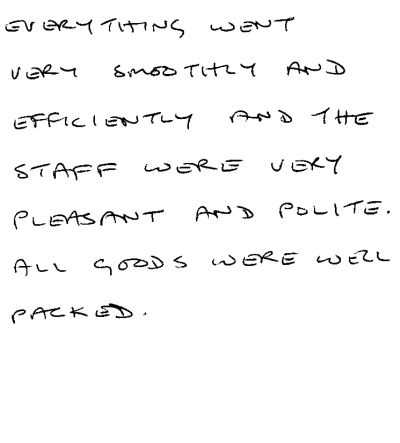 EVERYTHING WENT
VERY SMOOTHLY AND
EFFICIENTLY AND THE
STAFF WERE VERY
PLEASANT AND POLITE.
ALL GOODS WERE WELL
PACKED.